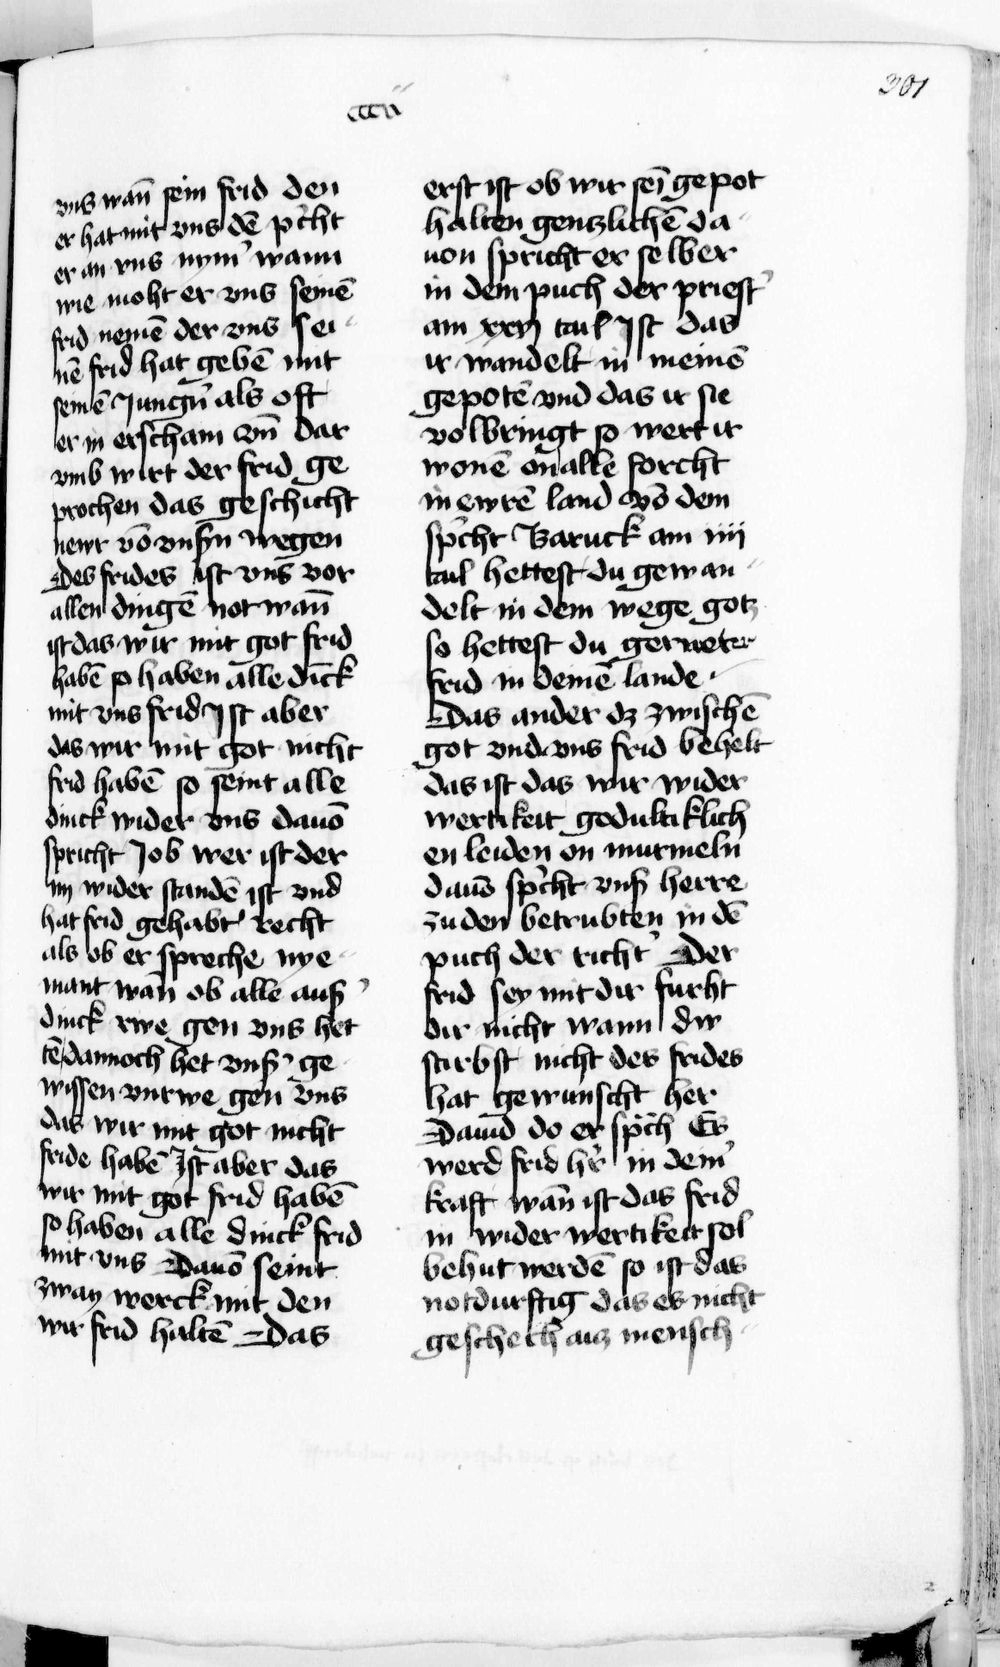 301
cccii
vns wan̄ sein frid den
er hat mit vns dē pͬcht
er an vns nym̾ wann
wie moht er vns seinē
frid nemē der vns sei
nē frid hat gebē mit
seinē Jungn̄ als oft
er in erscham vn̄ Dar
vmb wirt der frid ge
prochen das geschicht
newr vō vnsn̄ wegen
Des frides ist vns vor
allen dingē not wan̄
ist das wir mit got frid
habē so haben alle dīck
mit vns frid Ist aber
das wir mit got nicht
frid habē so seint alle
dinck wider vns dauō
spricht Job wer ist der
im wider standē ist vnd
hat frid gehabt recht
als ob er spreche nye
mant wan̄ ob alle auß̾
dinck rwe gen vns het
tē dannoch het vnß̾ ge
wissen vnrwe gen vns
das wir mit got nicht
fride habē Ist aber das
wir mit got frid habē
so haben alle dinck frid
mit vns Dauō seint
zway werck mit den
wir frid haltē Das
erst ist ob wir sen̄ gepot
halten genczlichē da
uon spricht er selber
in dem puch der priest̾
am xxvj tail Ist das
ir wandelt in meinē
gepotē vnd das ir sie
volbringt so wert ir
wonē on alle forcht
in ewrē land vō dem
spͬcht Baruck am iiij
tail hettest du gewan
delt in dem wege gotz
so hettest du gerueter
frid in deinē lande
Das ander dz zwischē
got vnd vns frid behelt
das ist das wir wider
wertikeit gedultiklich
en leiden on murmeln
dauō spͬcht vnß herre
zu den betrubten in dē
puch der richt̾ Der
frid sey mit dir furht
dir nicht wann dw
stirbst nicht des frides
hat gewunscht her
Dauid do er spͬch Es
werd frid hr̄ in dein̾
kraft wan̄ ist das frid
in wider wertikeit sol
behut werdē so ist das
notdurftig das es nicht
geschech aus mensch